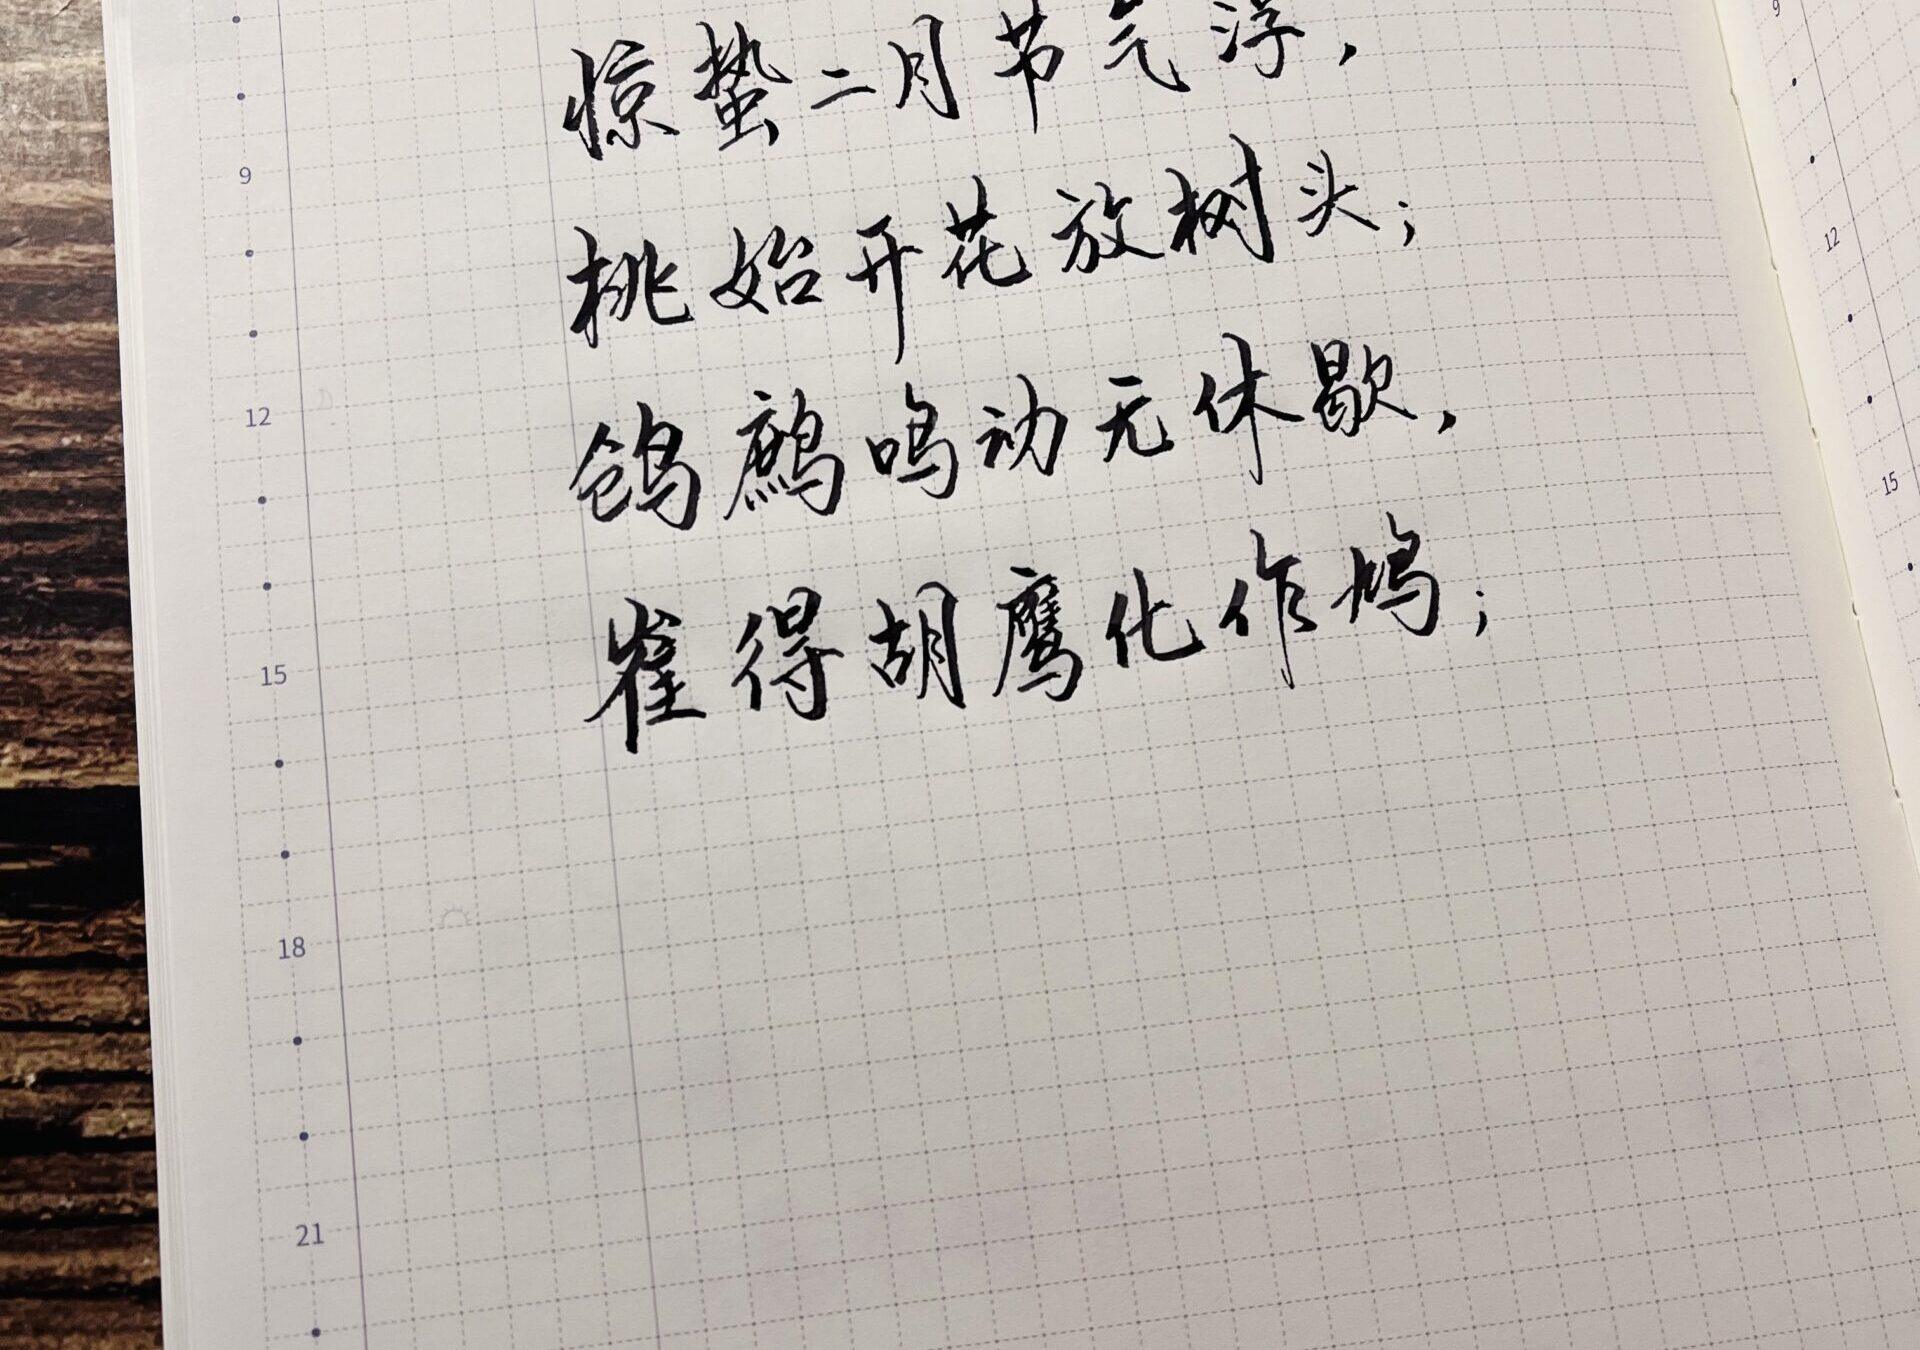 惊蛰二月节气浮，
桃始开花放树头；
鸧鹧鸣动无休歇，
崔得胡鹰化作鸠；
9
12
15
18
21
9
12
15